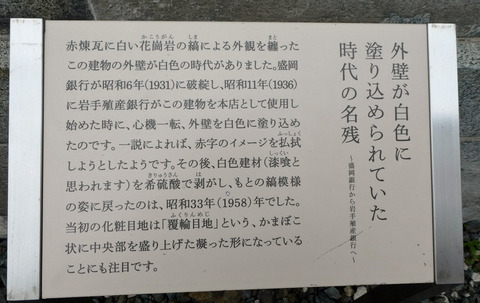 外壁が白色に
塗り込められていた
時代の名残
~盛岡銀行から岩手殖産銀行へ~
赤煉瓦に白い花崗岩の縞による外観を纏った
この建物の外壁が白色の時代がありました。盛岡
銀行が昭和6年(1931)に破綻し、昭和11年(1936)
に岩手殖産銀行がこの建物を本店として使用し
始めた時に、心機一転、外壁を白色に塗り込め
たのです。一説によれば、赤字のイメージを払拭
しようとしたようです。その後、白色建材(漆喰と
思われます)を希硫酸で剥がし、もとの縞模様
の姿に戻ったのは、昭和33年(1958)年でした。
当初の化粧目地は「覆輪目地」という、かまぼこ
状に中央部を盛り上げた凝った形になっている
ことにも注目です。